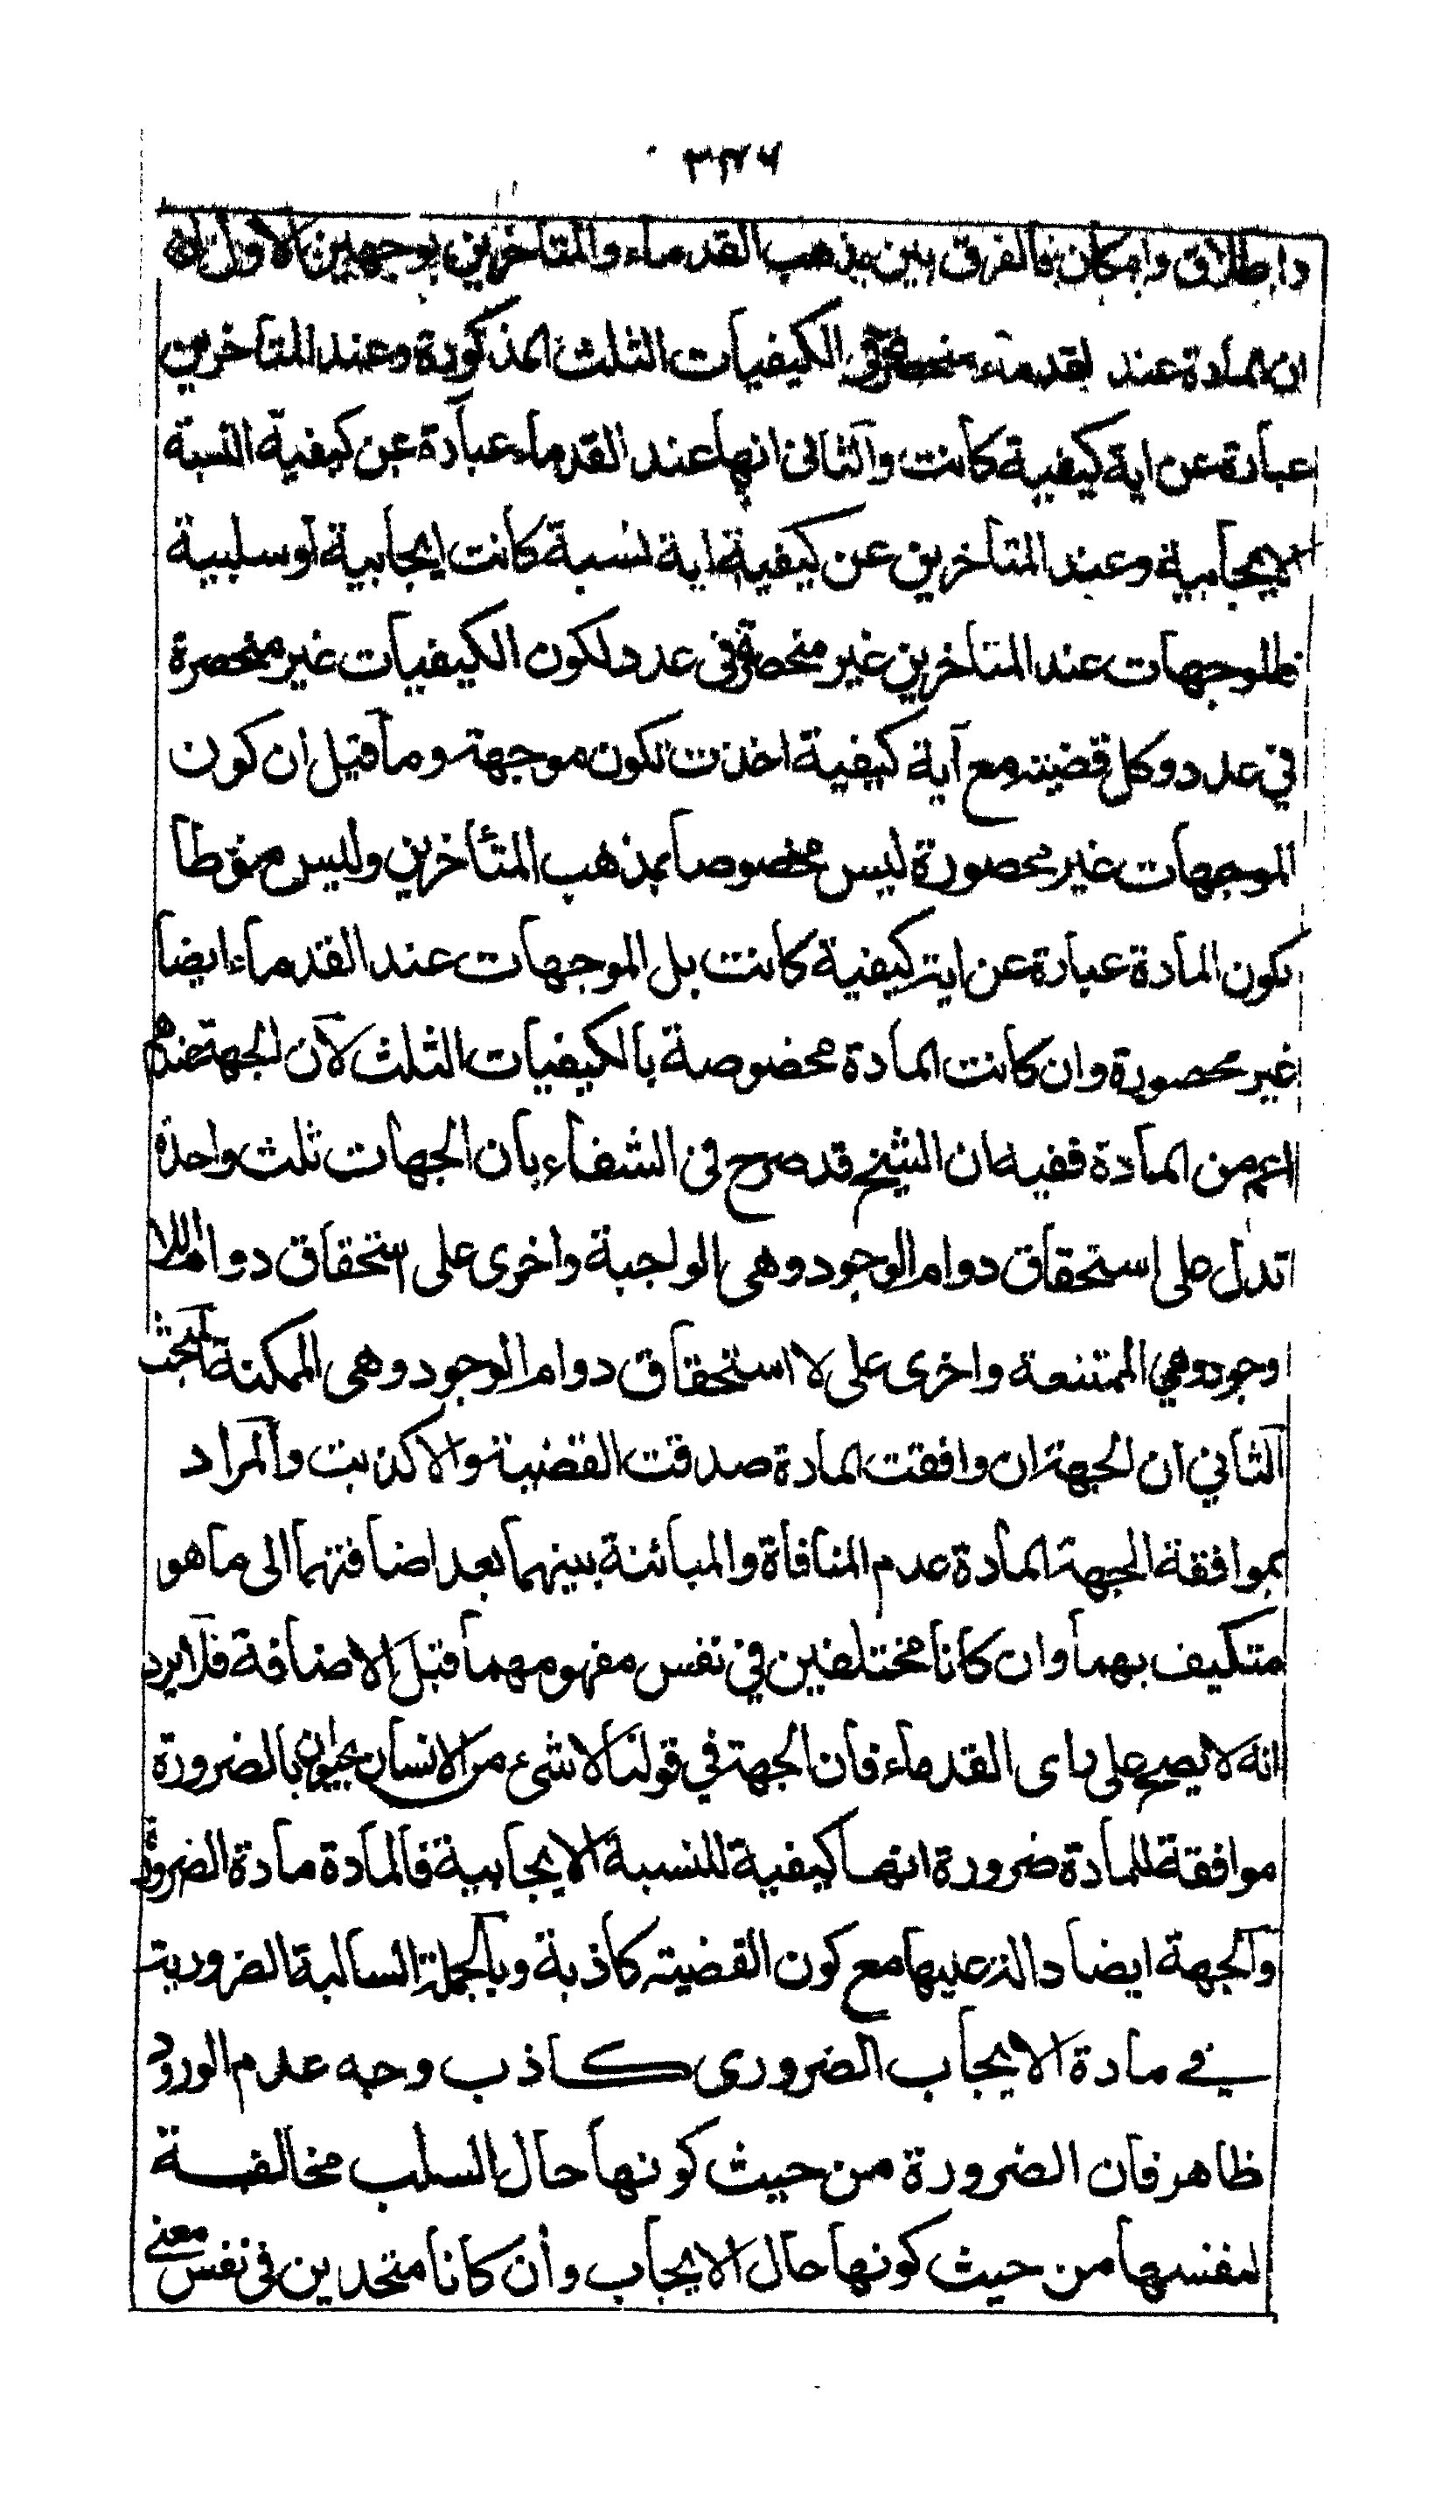 ٣٢٦
واطلاق وامكان فالفرق بين مذهب القدماء والمتاخرين بوجهين الاول ان
ان المادة عند القدماء منحصرة في الكيفيات الثلث المذكورة وعند المتاخرين
عبارة عن اية كيفية كانت والثانى انها عند القدماء عبارة عن كيفية النسبة
الايجابية وعند المتاخرين عن كيفية اية نسبة كانت ايجابية او سلبية
فالموجهات عند المتاخرين غير منحصرة فى عدد لكون الكيفيات غير منحصرة
في عدد وكل قضية مع آية كيفية اخذت تكون موجهة وما قيل ان كون
الموجهات غير محصورة ليس مخصوصا بمذهب المتأخرين وليس منوطا
بكون المادة عبارة عن اية كيفية كانت بل الموجهات عند القدماء ايضا
غير محصورة وان كانت المادة مخصوصة بالكيفيات الثلث لان الجهة عندهم
اعم من المادة ففيه ان الشيخ قد صرح فى الشفاء بان الجهات ثلث واحدة
تدل على استحقاق دوام الوجود وهى الواجبة واخرى على استحقاق دوام اللا
وجود وهي الممتنعة واخرى على لا استحقاق دوام الوجود وهى الممكنة المبحث
الثاني ان الجهة ان وافقت المادة صدقت القضية والا كذبت والمراد
بموافقة الجهة المادة عدم المنافاة والمبائنة بينهما بعد اضافتهما الى ما هو
متكيف بهما وان كانا مختلفين في نفس مفهومهما قبل الاضافة فلا يرد
انه لا يصح على راى القدماء فان الجهة في قولنا لا شئ من الانسان بحيوان بالضرورة
موافقة للمادة ضرورة انها كيفية للنسبة الايجابية فالمادة مادة الضرورة
والجهة ايضا دالة عليها مع كون القضية كاذبة وبالجملة السالبة الضرورية
في مادة الايجاب الضرورى كاذب وجه عدم الورود
ظاهر فان الضرورة من حيث كونها حال السلب مخالفة
لنفسها من حيث كونها حال الايجاب وان كانا متحدين فى نفس معنى